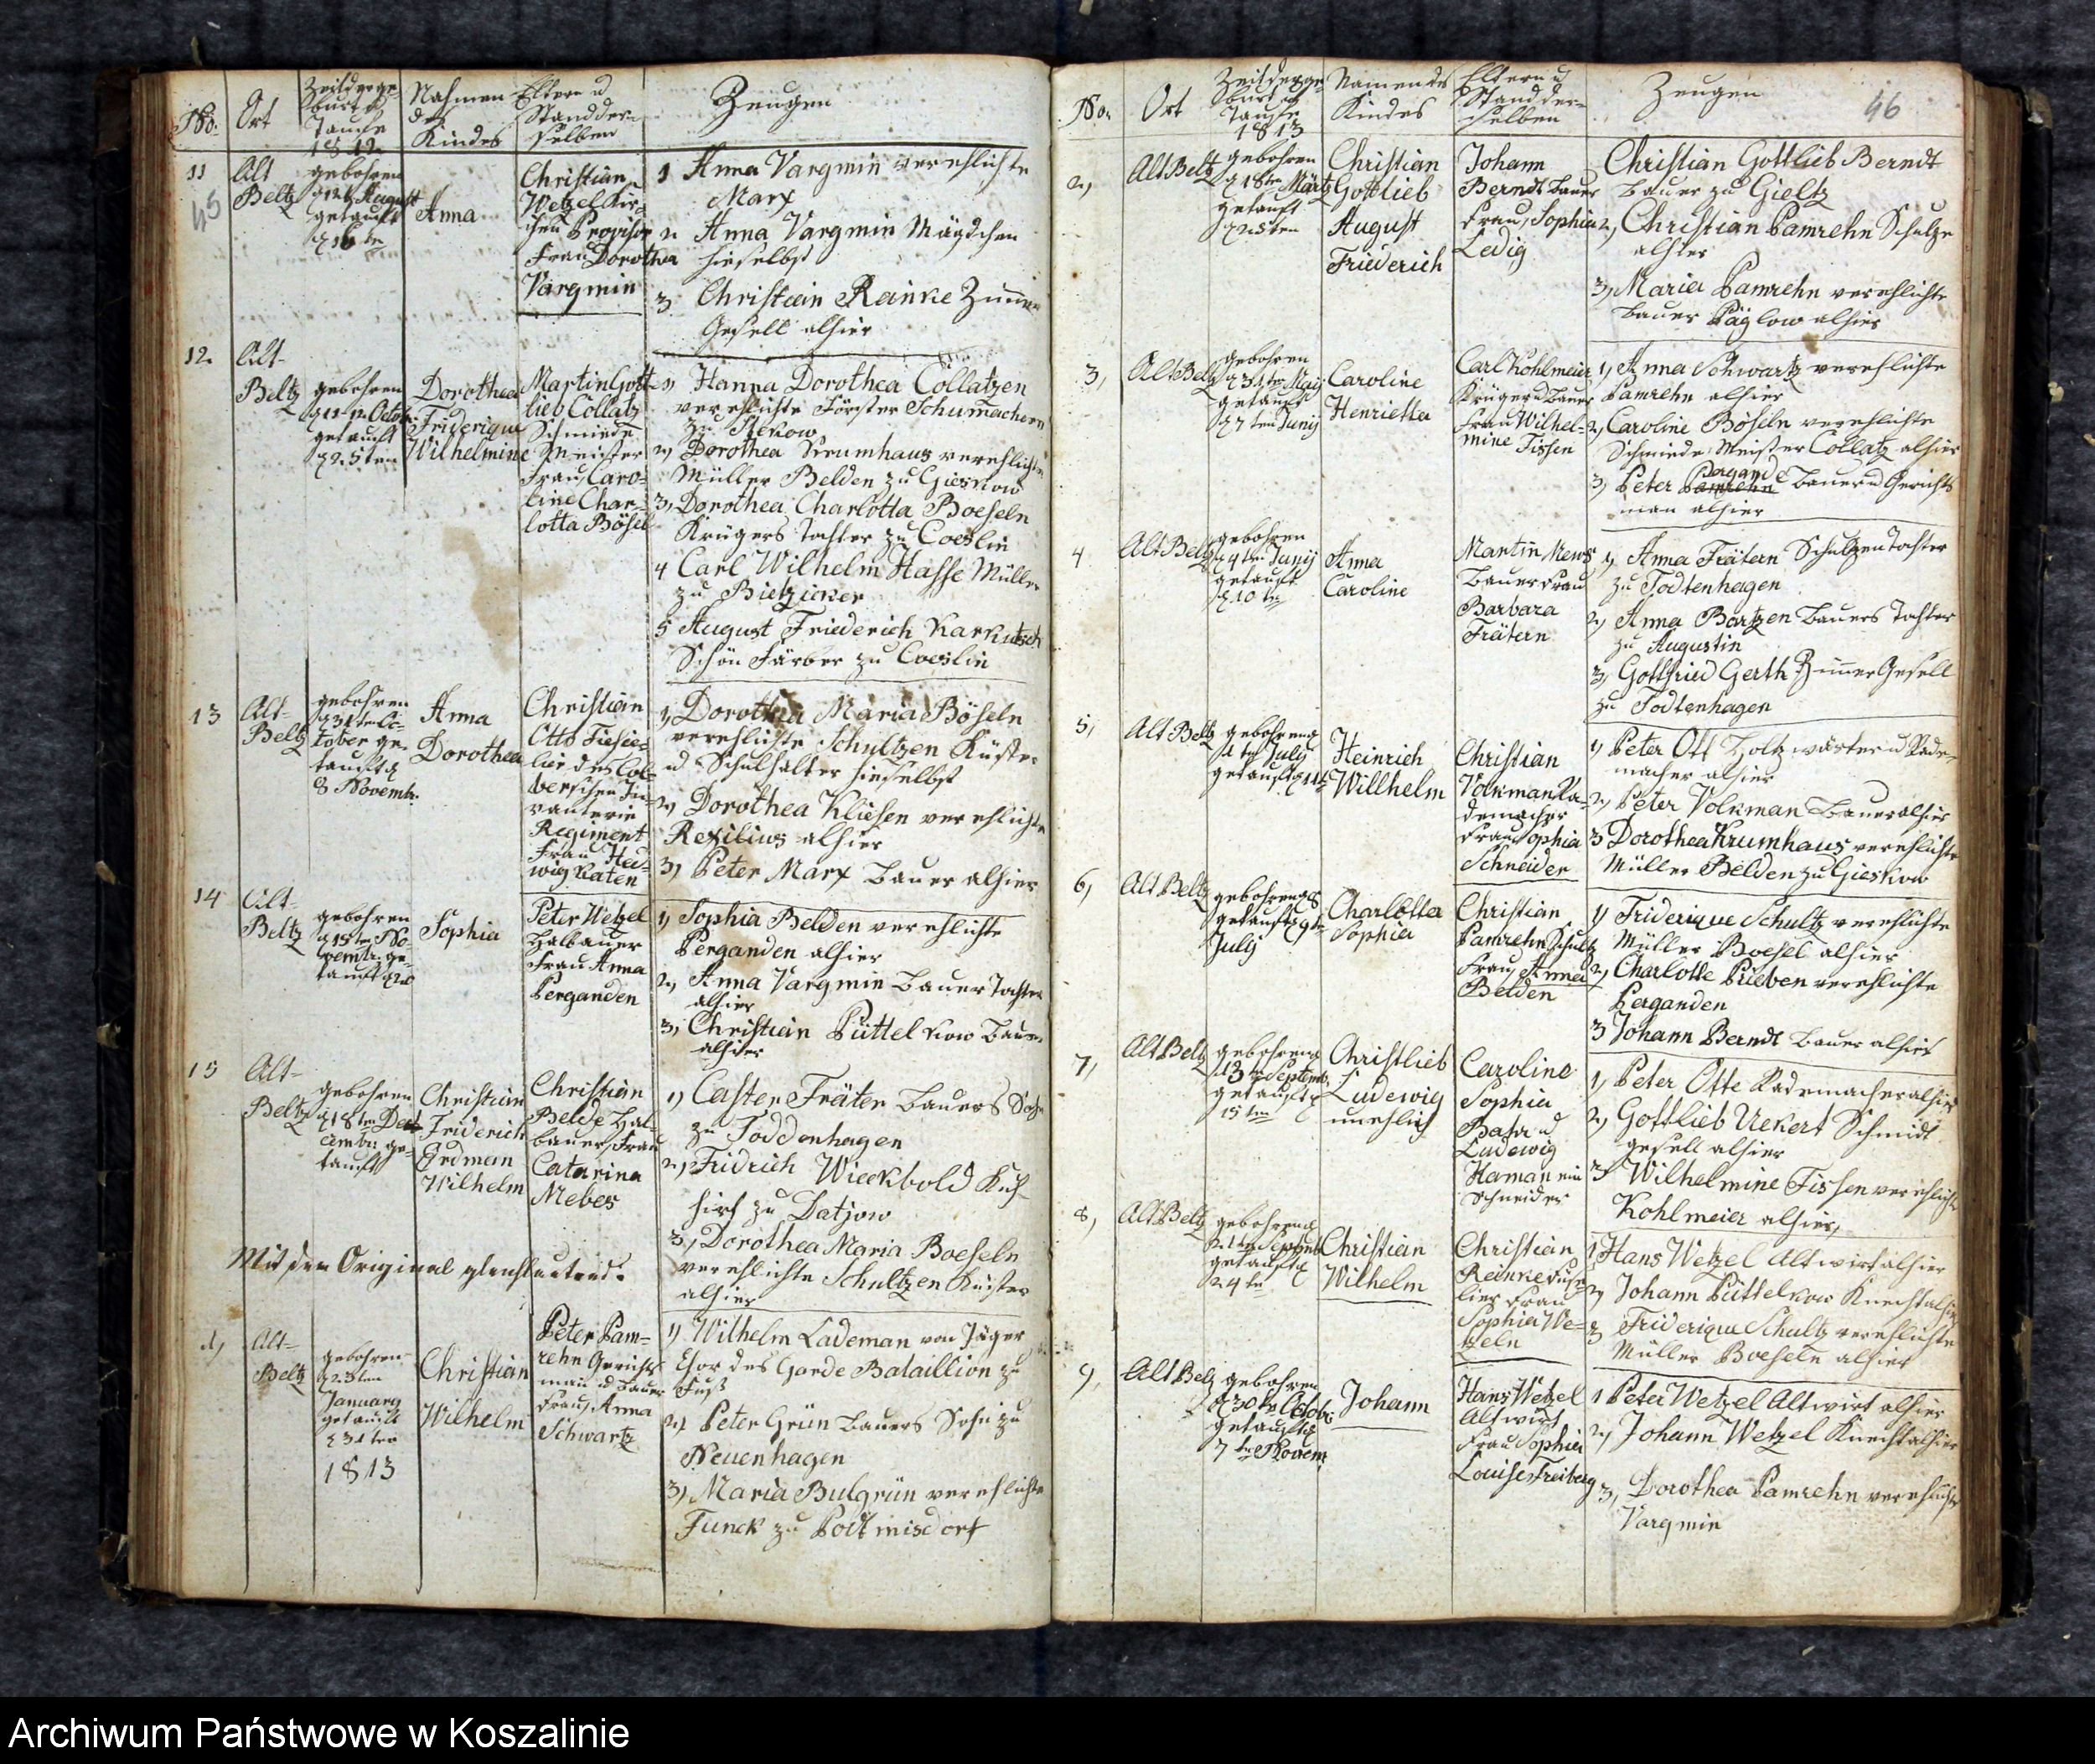 No.
Ort
Zeit der Ge-
burt u
Taufe
1812
Nahmen
des
Kindes
Eltern u
Stand der-
selben
Zeugen
11
45
Alt
Beltz
gebohren
d 12t August
getauft
d 16 te
Anna
Christian
Wetzel Kir-
chen Provisor
Frau Dorothea
Vargmin
1 Anna Vargmin verehlichte
Marx
2 Anna Vargmin Mägdchen
hieselbst
3 Christian Reinke Zimmer
Gesell alhier
12.
Alt-
Beltz
gebohren
getauft
d 25ten
Dorothea
Friderique
Wilhelmine
Martin Gott-
lieb Collatz
Schmiede
Meister
Frau Caro-
line Char-
lotta Bösel
1) Hanna Dorothea Collatzen
verehlichte Förster Schumachern
2) Dorothea Krumhaus verehlichte
Müller Belden zu Gieskow
3, Dorothea Charlotta Boeseln
Krügers Tochter zu Coeslin
4 Carl Wilhelm Hasse Müller
zu Bietzicker
5 August Friederich Karkutsch
Schön Färber zu Coeslin
13
Alt-
Beltz
gebohren
d 31 ten Oc-
tober ge-
tauft d
8 Novemb.
Anna
Dorothea
Christian
Otto Fiesie-
lier des Col-
bergschen In-
fanterie
Regiment
Frau Hed-
wig Katen
1) Dorothea Maria Böseln
verehlichte Schultzen Küster
u Schulhalter hieselbst
2) Dorothea Kliesen verehlichte
Rexilius alhier
3) Peter Marx Bauer alhier
14
Alt-
Beltz
gebohren
d 15ten No-
vembr. ge-
tauft d 22
Sophia
Peter Wetzel
Halbauer
Frau Anna
Perganden
1) Sophia Belden verehlichte
Perganden alhier
2, Anna Vargmin Bauer Tochter
alhier
3, Christian Püttelkow Bauer
alhier
15
Alt-
Beltz
gebohren
d 18ten Dec-
embr: ge-
tauft
Christian
Friderich
Erdman
Wilhelm
Christian
Belde Hal-
bauer, Frau
Catarina
Mebes
1) Casten Fräter Bauers Sohn
zu Toddenhagen
2, Fridrich Wieckbold Kuh-
hirt zu Datjow
3, Dorothea Maria Boeseln
verehlichte Schultzen Küster
alhier
Mit dem Original gleichlautend.
1)
Alt-
Beltz
gebohren
d 23ten
January
getauft
d 31 ten
1813
Christian
Wilhelm
Peter Pam-
rehn Gerichts
man u Bauer
Frau, Anna
Schwartz
1) Wilhelm Lademan von Jäger
Chor des Garde Bataillion zu
Fuß
2) Peter Grün Bauers Sohn zu
Neuenhagen
3) Maria Bulgrün verehlichte
Funck zu Podtmisdorf
No.
Ort
Zeit der Ge-
burt u
Taufe
1813
Namen des
Kindes
Eltern u
Stand der-
selben
Zeugen
46
2,
Alt Beltz
gebohren
d 18ten Märtz
getauft
d 25ten
Christian
Gottlieb
August
Friederich
Johann
Berndt Bauer
Frau, Sophia
Ledig
Christian Gottlieb Berndt
Bauer zu Gieltz
2, Christian Pamrehn Schulze
alhier
3, Maria Pamrehn verehlichte
Bauer Päglow alhier
3,
Alt Beltz
gebohren
d 31ten Maij
getauft
d 7 ten Junij
Caroline
Henrietta
Carl Kohlmeier
Krüger u Bauer
Frau Wilhel-
mine Tissen
1) Anna Schwartz verehlichte
Pamrehn alhier
2, Caroline Böseln verehlichte
Schmiede Meister Collatz alhier
3, Peter Pamrehn Pergande Bauer u Gerichts
man alhier
4
Alt Beltz
gebohren
d 4ten Junij
getauft
d 10 ten
Anna
Caroline
Martin Mews
Bauer Frau
Barbara
Frätern
1) Anna Frätern Schulzen Tochter
zu Todtenhagen
2, Anna Bartzen Bauers Tochter
zu Augustin
3, Gottfried Gerth Zimmer Gesell
zu Todtenhagen
5,
Alt Beltz
gebohren d
ten July
getauft d 11t
Heinrich
Willhelm
Christian
Volkman Ra-
demacher
Frau Sophia
Schneider
1) Peter Ott Holtzwärter u Rade-
macher alhier
2, Peter Volkman Bauer alhier
3 Dorothea Krumhaus verehlichte
Müller Belden zu Gieskow
6,
Alt Beltz
gebohren d 8
getauft d 9te
July
Charlotta
Sophia
Christian
Pamrehn Schultz
Frau, Anna
Belden
1) Friderique Schultz verehlichte
Müller Boesel alhier
2, Charlotte Püeben verehlichte
Perganden
3 Johann Berndt Bauer alhier
7,
Alt Beltz
gebohren d
13 ten Septemb.
getauft d
15 ten
Christlieb
Ludewig
unehlich
Caroline
Sophia
u
Ludewig
Haman ein
Schneider
1, Peter Otte Rademacher alhier
2, Gottlieb Uekert Schmidt
gesell alhier
3, Wilhelmine Tissen verehlichte
Kohlmeier alhier,
8,
Alt Beltz
gebohren d
21ten Septemb
getauft d
24 ten
Christian
Wilhelm
Christian
Reinke Füse-
lier Frau
Sophia We-
tzeln
1, Hans Wetzel Altwirt alhier
2, Johann Püttelkow Knecht alhier
3 Friderique Schultz verehlichte
Müller Boeseln alhier
9,
Alt Beltz
gebohren
d 30 te Octobr:
getauft d
7 ten Novem.
Johann
Hans Wetzel
Altwirt
Frau Sophia
Louise Freiberg
1 Peter Wetzel Altwirt alhier
2, Johann Wetzel Knecht alhier
3, Dorothea Pamrehn verehlichte
Vargmin
Archiwum Państwowe w Koszalinie